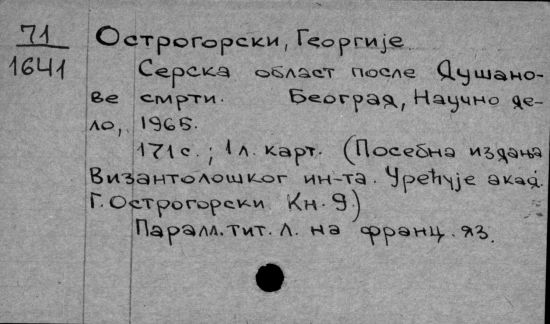 71
1641
Острогорски, Георгије
Серска област после Душано-
ве смрти. Београд, Научно де-
ло, 1965.
171с.; 1л. карт. (Посебна издања
Византолошког ин-та. Уређује акад.
Г. Острогорски Кн. 9)
Паралл. тит. л. на франц. яз.